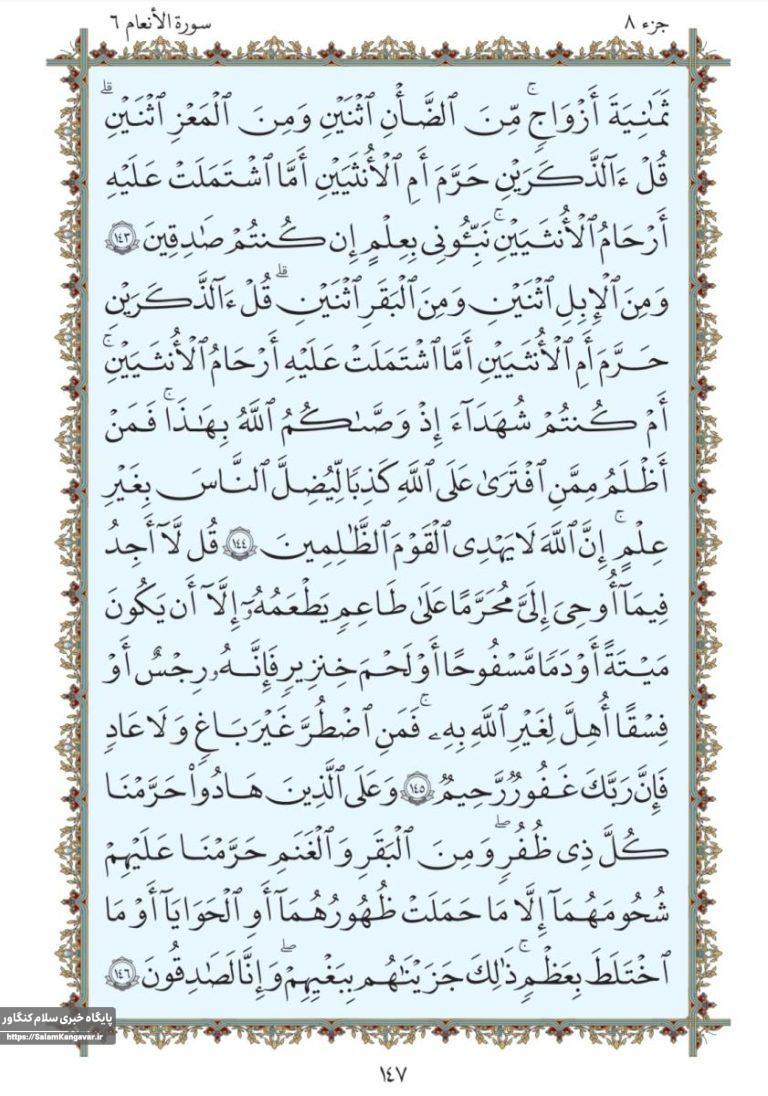 جزء ٨
سورة الأنعام ٦
ثَمَٰنِيَةَ أَزْوَٰجٍۖ مِّنَ ٱلضَّأْنِ ٱثْنَيْنِ وَمِنَ ٱلْمَعْزِ ٱثْنَيْنِۗ
قُلْ ءَآلذَّكَرَيْنِ حَرَّمَ أَمِ ٱلْأُنثَيَيْنِ أَمَّا ٱشْتَمَلَتْ عَلَيْهِ
أَرْحَامُ ٱلْأُنثَيَيْنِۖ نَبِّـُٔونِى بِعِلْمٍ إِن كُنتُمْ صَٰدِقِينَ ١٤٣
وَمِنَ ٱلْإِبِلِ ٱثْنَيْنِ وَمِنَ ٱلْبَقَرِ ٱثْنَيْنِۗ قُلْ ءَآلذَّكَرَيْنِ
حَرَّمَ أَمِ ٱلْأُنثَيَيْنِ أَمَّا ٱشْتَمَلَتْ عَلَيْهِ أَرْحَامُ ٱلْأُنثَيَيْنِۖ
أَمْ كُنتُمْ شُهَدَآءَ إِذْ وَصَّىٰكُمُ ٱللَّهُ بِهَٰذَاۚ فَمَنْ
أَظْلَمُ مِمَّنِ ٱفْتَرَىٰ عَلَى ٱللَّهِ كَذِبًا لِّيُضِلَّ ٱلنَّاسَ بِغَيْرِ
عِلْمٍۚ إِنَّ ٱللَّهَ لَا يَهْدِى ٱلْقَوْمَ ٱلظَّٰلِمِينَ ١٤٤ قُل لَّآ أَجِدُ
فِيمَآ أُوحِىَ إِلَىَّ مُحَرَّمًا عَلَىٰ طَاعِمٍ يَطْعَمُهُۥٓ إِلَّآ أَن يَكُونَ
مَيْتَةً أَوْ دَمًا مَّسْفُوحًا أَوْ لَحْمَ خِنزِيرٍ فَإِنَّهُۥ رِجْسٌ أَوْ
فِسْقًا أُهِلَّ لِغَيْرِ ٱللَّهِ بِهِۦۚ فَمَنِ ٱضْطُرَّ غَيْرَ بَاغٍ وَلَا عَادٍ
فَإِنَّ رَبَّكَ غَفُورٌ رَّحِيمٌ ١٤٥ وَعَلَى ٱلَّذِينَ هَادُوا۟ حَرَّمْنَا
كُلَّ ذِى ظُفُرٍۖ وَمِنَ ٱلْبَقَرِ وَٱلْغَنَمِ حَرَّمْنَا عَلَيْهِمْ
شُحُومَهُمَآ إِلَّا مَا حَمَلَتْ ظُهُورُهُمَآ أَوِ ٱلْحَوَايَآ أَوْ مَا
ٱخْتَلَطَ بِعَظْمٍۚ ذَٰلِكَ جَزَيْنَٰهُم بِبَغْيِهِمْۖ وَإِنَّا لَصَٰدِقُونَ ١٤٦
پایگاه خبری سلام کنگاور
https://SalamKangavar.ir
١٤٧